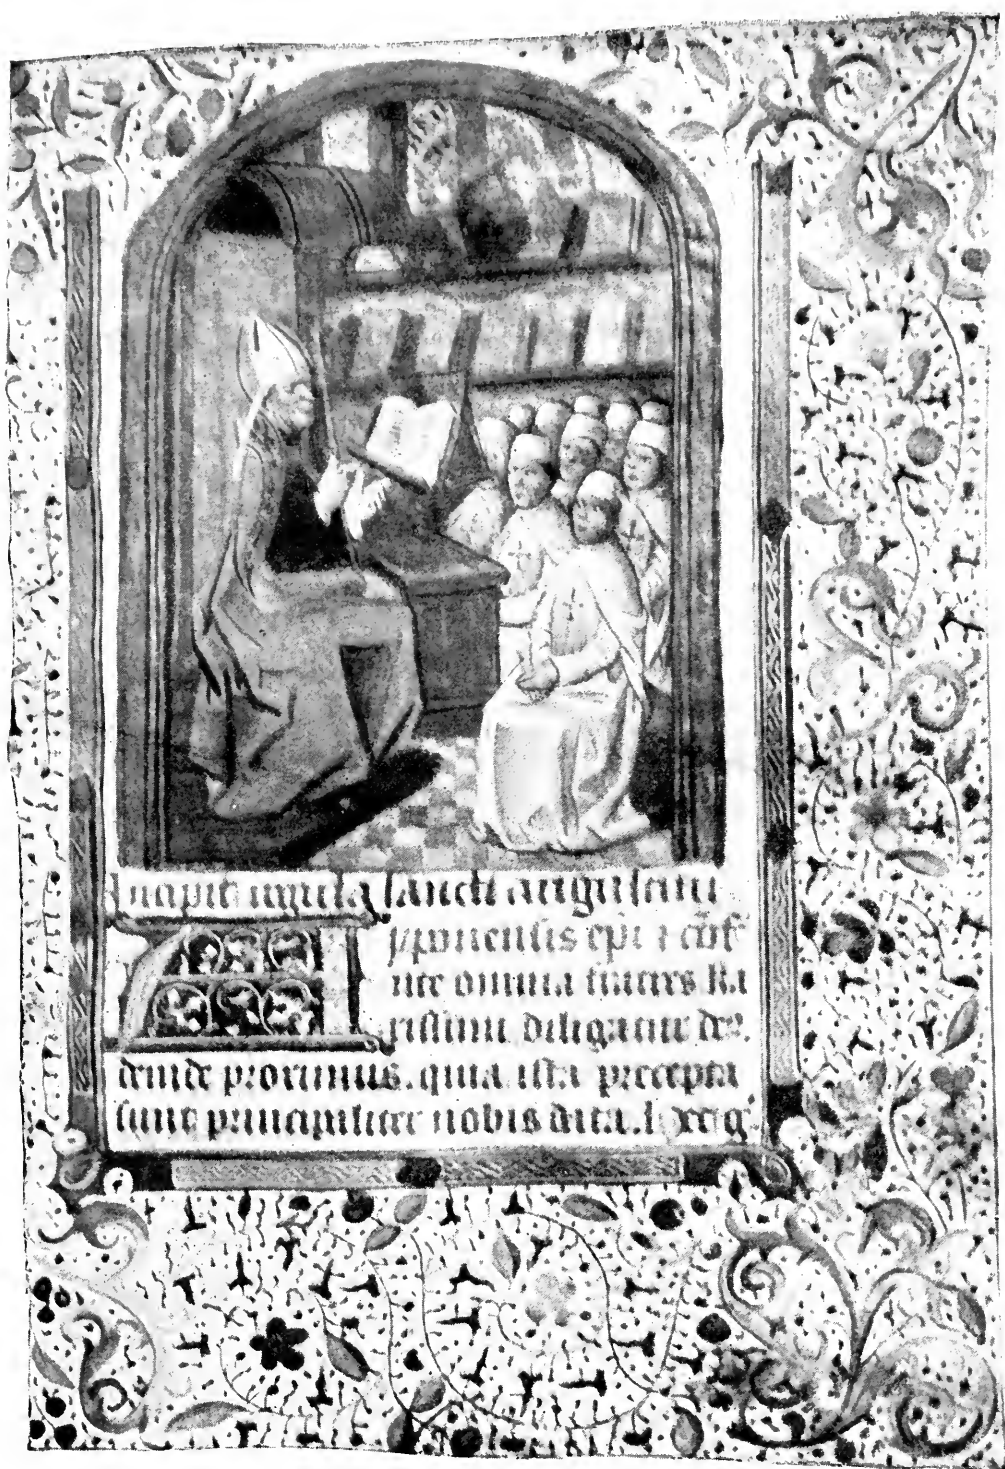 Incipit regula sancti augustini
yponensis epi ⁊ cōf
nte omnia fratres ka
rissimi diligatur de⁹.
deinde proximus. quia ista precepta
sunt principaliter nobis data.